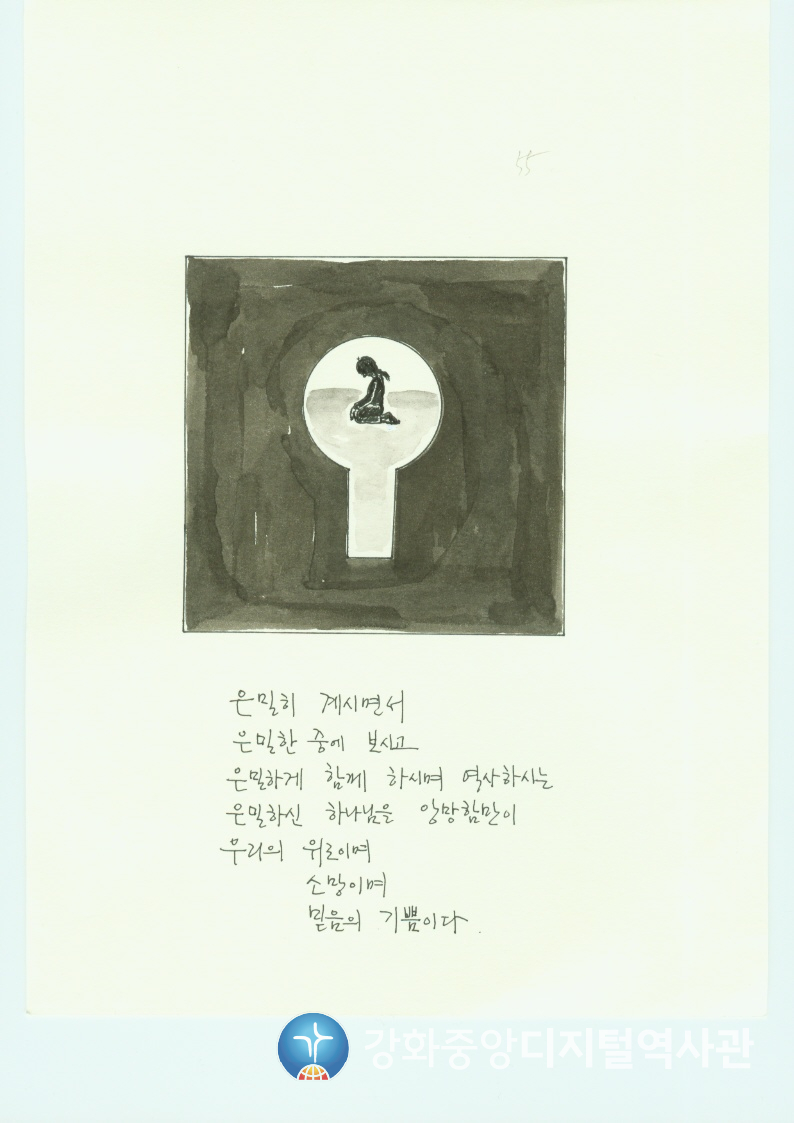 55
은밀히 계시면서
은밀한 중에 보시고
은밀하게 함께 하시며 역사하시는
은밀하신 하나님을 앙망함만이
우리의 위로이며
소망이며
믿음의 기쁨이다.
강화중앙디지털역사관